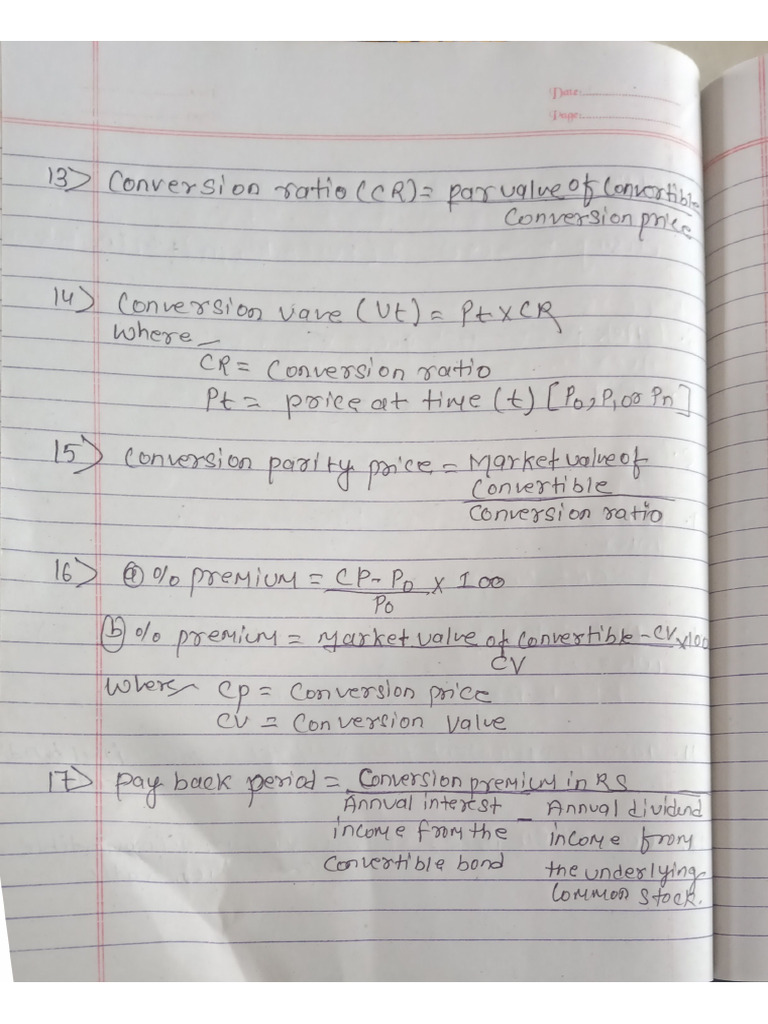 Date:
Page:
13> Conversion ratio (CR) = par value of Convertible
Conversion price
14> Conversion vave (Vt) = Pt x CR
Where
CR = Conversion ratio
Pt = price at time (t) [P0, P1 or Pn]
15> Conversion parity price = Market value of
Convertible
Conversion ratio
16> (a) % premium = CP - P0 x 100
P0
(b) % premium = Market value of convertible - CV x 100
CV
Where CP = Conversion price
CV = Conversion value
17> pay back period = Conversion premium in RS
Annual interest - Annual dividend
income from the income from
Convertible bond the underlying
Common stock.